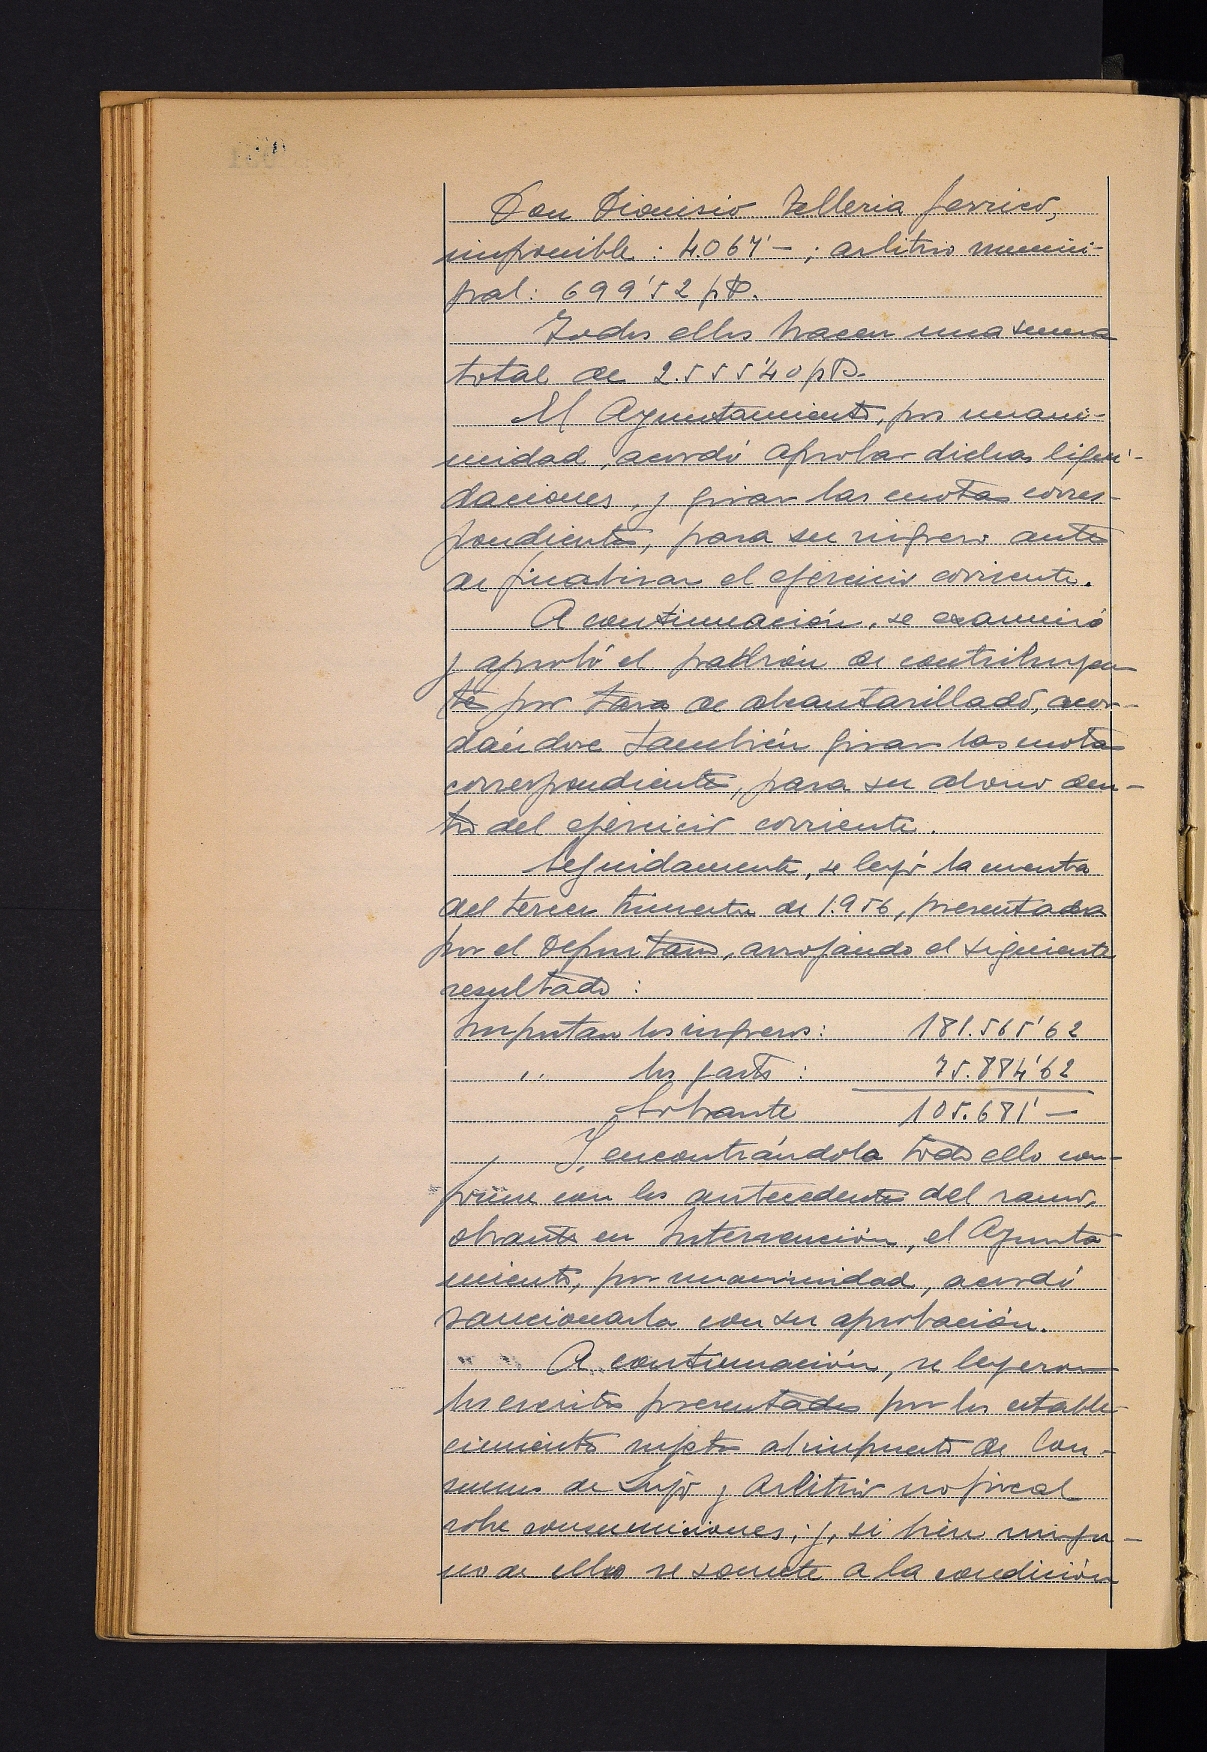 Don Dionisio Telleria Jarrico,
imponible: 4.067'—; arbitrio munici-
pal: 699'52 pts.
Todos ellos hacen una suma
total de 2.555'40 pts.
El Ayuntamiento, por unani-
midad, acordó aprobar dichas liqui-
daciones, y girar las cuotas corres-
pondientes, para su ingreso antes
de finalizar el ejercicio corriente.
A continuación, se examinó
y aprobó el padrón de contribuyen
tes por tasa de alcantarillado, acor-
dándose también girar las cuotas
correspondientes, para su abono den-
tro del ejercicio corriente.
Seguidamente, se leyó la cuenta
del tercer trimestre de 1.956, presentada
por el Depositario, arrojando el siguiente
resultado:
Importan los ingresos: 181.565'62
" los gastos: 75.884'62
Sobrante 105.681'—
Y, encontrándola todo ello con-
forme con los antecedentes del ramo,
obrantes en Intervención, el Ayunta-
miento, por unanimidad, acordó
sancionarla con su aprobación.
A continuación, se leyeron
los escritos presentados por los estable-
cimientos sujetos al impuesto de Con-
sumos de Lujo y Arbitrio no fiscal
sobre consumiciones; y, si bien ningu-
no de ellos se somete a la condición